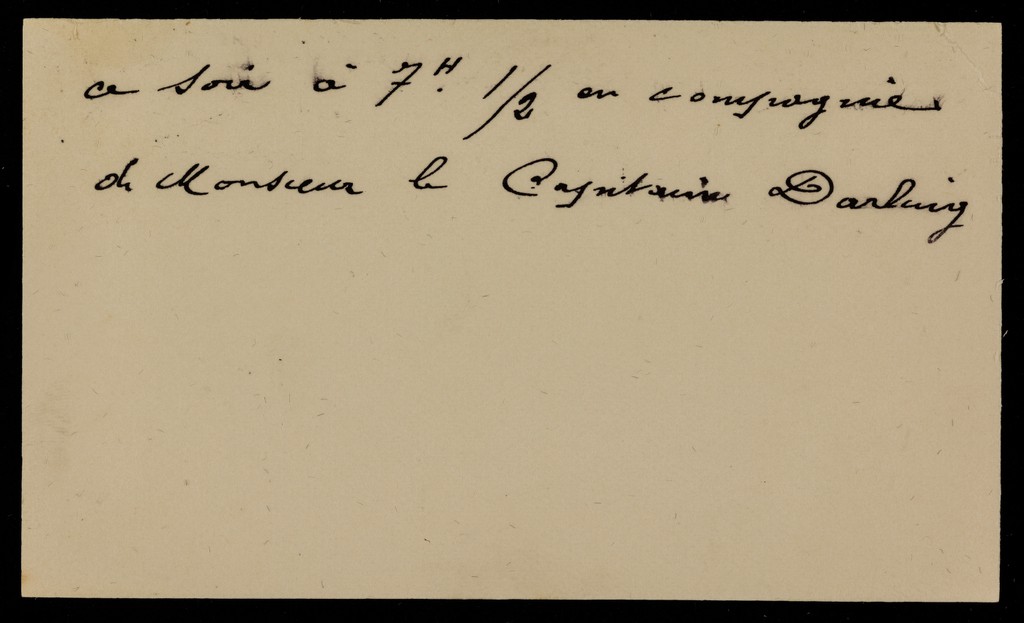 ce soir à 7H. 1/2 en compagnie
de Monsieur le Capitaine Darling